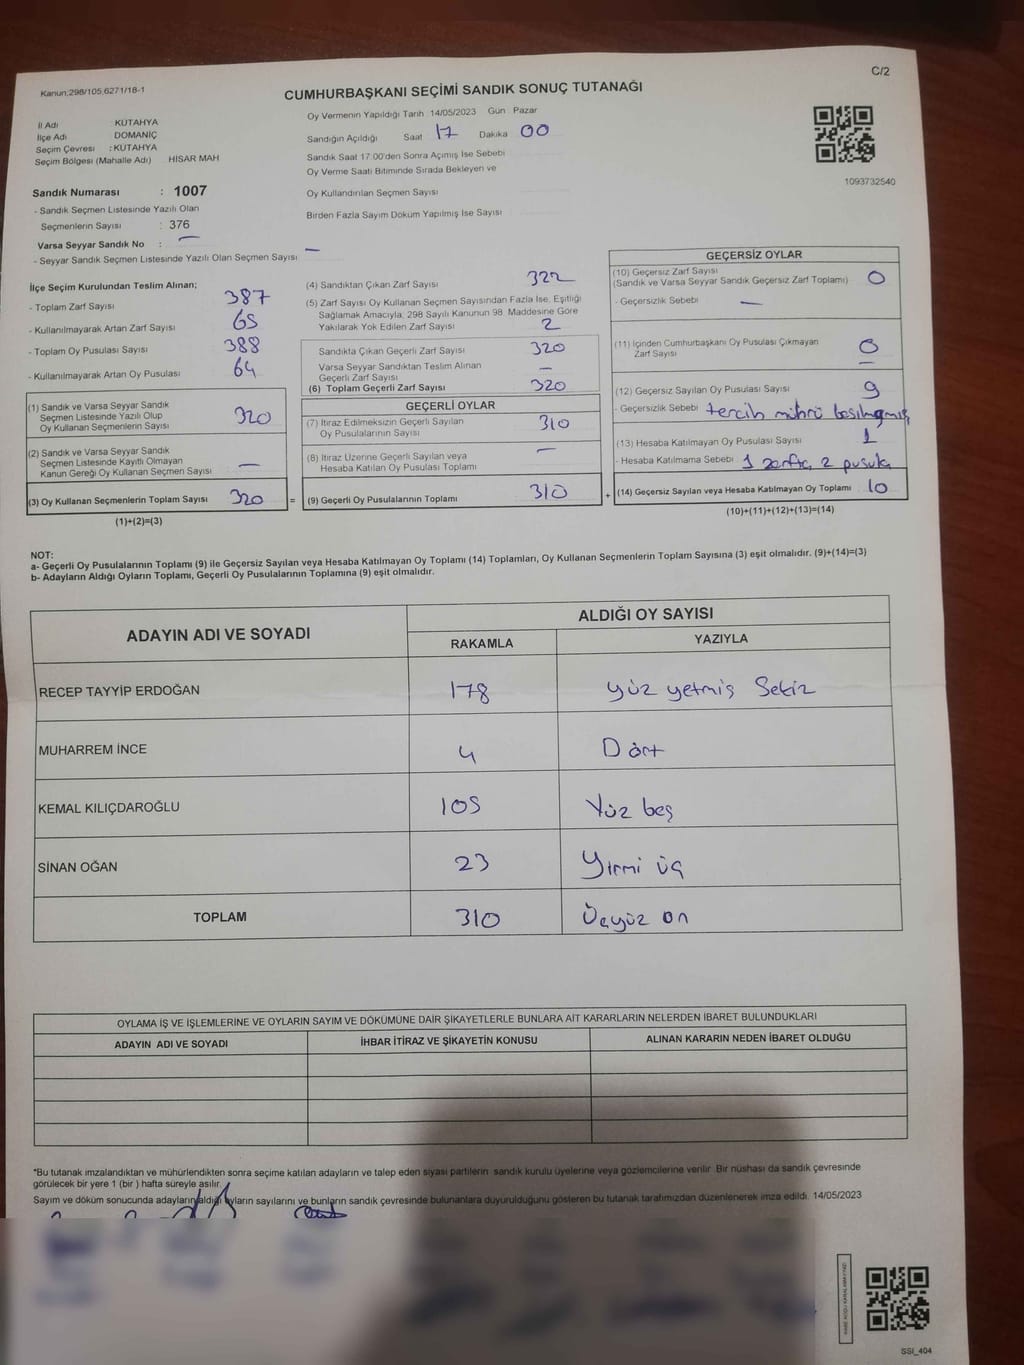 C/2
Kanun;298/105,6271/18-1
CUMHURBAŞKANI SEÇİMİ SANDIK SONUÇ TUTANAĞI
1093732540
İl Adı KÜTAHYA
İlçe Adı DOMANİÇ
Seçim Çevresi : KÜTAHYA
Seçim Bölgesi (Mahalle Adı) HİSAR MAH
Sandık Numarası : 1007
- Sandık Seçmen Listesinde Yazılı Olan
Seçmenlerin Sayısı : 376
Varsa Seyyar Sandık No : —
- Seyyar Sandık Seçmen Listesinde Yazılı Olan Seçmen Sayısı —
Oy Vermenin Yapıldığı Tarih 14/05/2023 Gün Pazar
Sandığın Açıldığı Saat 17 Dakika 00
Sandık Saat 17:00'den Sonra Açımış İse Sebebi
Oy Verme Saati Bitiminde Sırada Bekleyen ve
Oy Kullandırılan Seçmen Sayısı
Birden Fazla Sayım Döküm Yapılmış İse Sayısı
İlçe Seçim Kurulundan Teslim Alınan;
- Toplam Zarf Sayısı 387
- Kullanılmayarak Artan Zarf Sayısı 65
- Toplam Oy Pusulası Sayısı 388
- Kullanılmayarak Artan Oy Pusulası 64
(1) Sandık ve Varsa Seyyar Sandık
Seçmen Listesinde Yazılı Olup
Oy Kullanan Seçmenlerin Sayısı 320
(2) Sandık ve Varsa Seyyar Sandık
Seçmen Listesinde Kayıtlı Olmayan
Kanun Gereği Oy Kullanan Seçmen Sayısı —
(3) Oy Kullanan Seçmenlerin Toplam Sayısı 320 =
(1)+(2)=(3)
(4) Sandıktan Çıkan Zarf Sayısı 322
(5) Zarf Sayısı Oy Kullanan Seçmen Sayısından Fazla İse, Eşitliği
Sağlamak Amacıyla, 298 Sayılı Kanunun 98. Maddesine Göre
Yakılarak Yok Edilen Zarf Sayısı 2
Sandıkta Çıkan Geçerli Zarf Sayısı 320
Varsa Seyyar Sandıktan Teslim Alınan
Geçerli Zarf Sayısı —
(6) Toplam Geçerli Zarf Sayısı 320
GEÇERLİ OYLAR
(7) İtiraz Edilmeksizin Geçerli Sayılan
Oy Pusulalarının Sayısı 310
(8) İtiraz Üzerine Geçerli Sayılan veya
Hesaba Katılan Oy Pusulası Toplamı —
(9) Geçerli Oy Pusulalarının Toplamı 310 +
GEÇERSİZ OYLAR
(10) Geçersiz Zarf Sayısı
(Sandık ve Varsa Seyyar Sandık Geçersiz Zarf Toplamı) 0
- Geçersizlik Sebebi —
(11) İçinden Cumhurbaşkanı Oy Pusulası Çıkmayan
Zarf Sayısı 0
(12) Geçersiz Sayılan Oy Pusulası Sayısı 9
- Geçersizlik Sebebi tercih mührü basılmamış
(13) Hesaba Katılmayan Oy Pusulası Sayısı 1
- Hesaba Katılmama Sebebi 1 zarfta, 2 pusula
(14) Geçersiz Sayılan veya Hesaba Katılmayan Oy Toplamı 10
(10)+(11)+(12)+(13)=(14)
NOT:
a- Geçerli Oy Pusulalarının Toplamı (9) ile Geçersiz Sayılan veya Hesaba Katılmayan Oy Toplamı (14) Toplamları, Oy Kullanan Seçmenlerin Toplam Sayısına (3) eşit olmalıdır. (9)+(14)=(3)
b- Adayların Aldığı Oyların Toplamı, Geçerli Oy Pusulalarının Toplamına (9) eşit olmalıdır.
ADAYIN ADI VE SOYADI
ALDIĞI OY SAYISI
RAKAMLA YAZIYLA
RECEP TAYYİP ERDOĞAN 178 yüz yetmiş Sekiz
MUHARREM İNCE 4 Dört
KEMAL KILIÇDAROĞLU 105 Yüz beş
SİNAN OĞAN 23 Yirmi üç
TOPLAM 310 Üçyüz on
OYLAMA İŞ VE İŞLEMLERİNE VE OYLARIN SAYIM VE DÖKÜMÜNE DAİR ŞİKAYETLERLE BUNLARA AİT KARARLARIN NELERDEN İBARET BULUNDUKLARI
ADAYIN ADI VE SOYADI İHBAR İTİRAZ VE ŞİKAYETİN KONUSU ALINAN KARARIN NEDEN İBARET OLDUĞU
*Bu tutanak imzalandıktan ve mühürlendikten sonra seçime katılan adayların ve talep eden siyasi partilerin sandık kurulu üyelerine veya gözlemcilerine verilir. Bir nüshası da sandık çevresinde
görülecek bir yere 1 (bir ) hafta süreyle asılır.
Sayım ve döküm sonucunda adayların aldığı oyların sayılarını ve bunların sandık çevresinde bulunanlara duyurulduğunu gösteren bu tutanak tarafımızdan düzenlenerek imza edildi. 14/05/2023
SSI_404